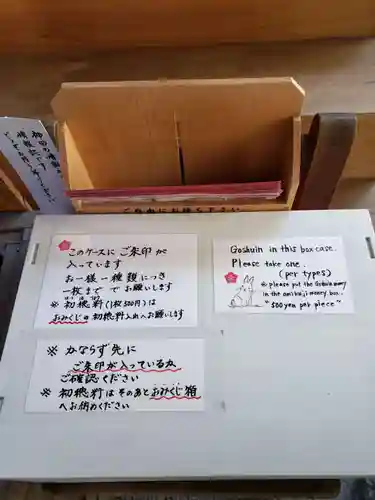 このケースに ご朱印が
入っています
お一様一種類につき
一枚までで お願いします
※ 初穂料(1枚500円)は
おみくじの初穂料入れへお願いします
Goshuin in this box case.
Please take one.
(per types)
※ please put the Goshuin money
in the omikuji money box.
"500 yen per piece"
※ かならず先に
ご朱印が入っているか
ご確認ください
※ 初穂料はそのあとおみくじ箱
へお納めください